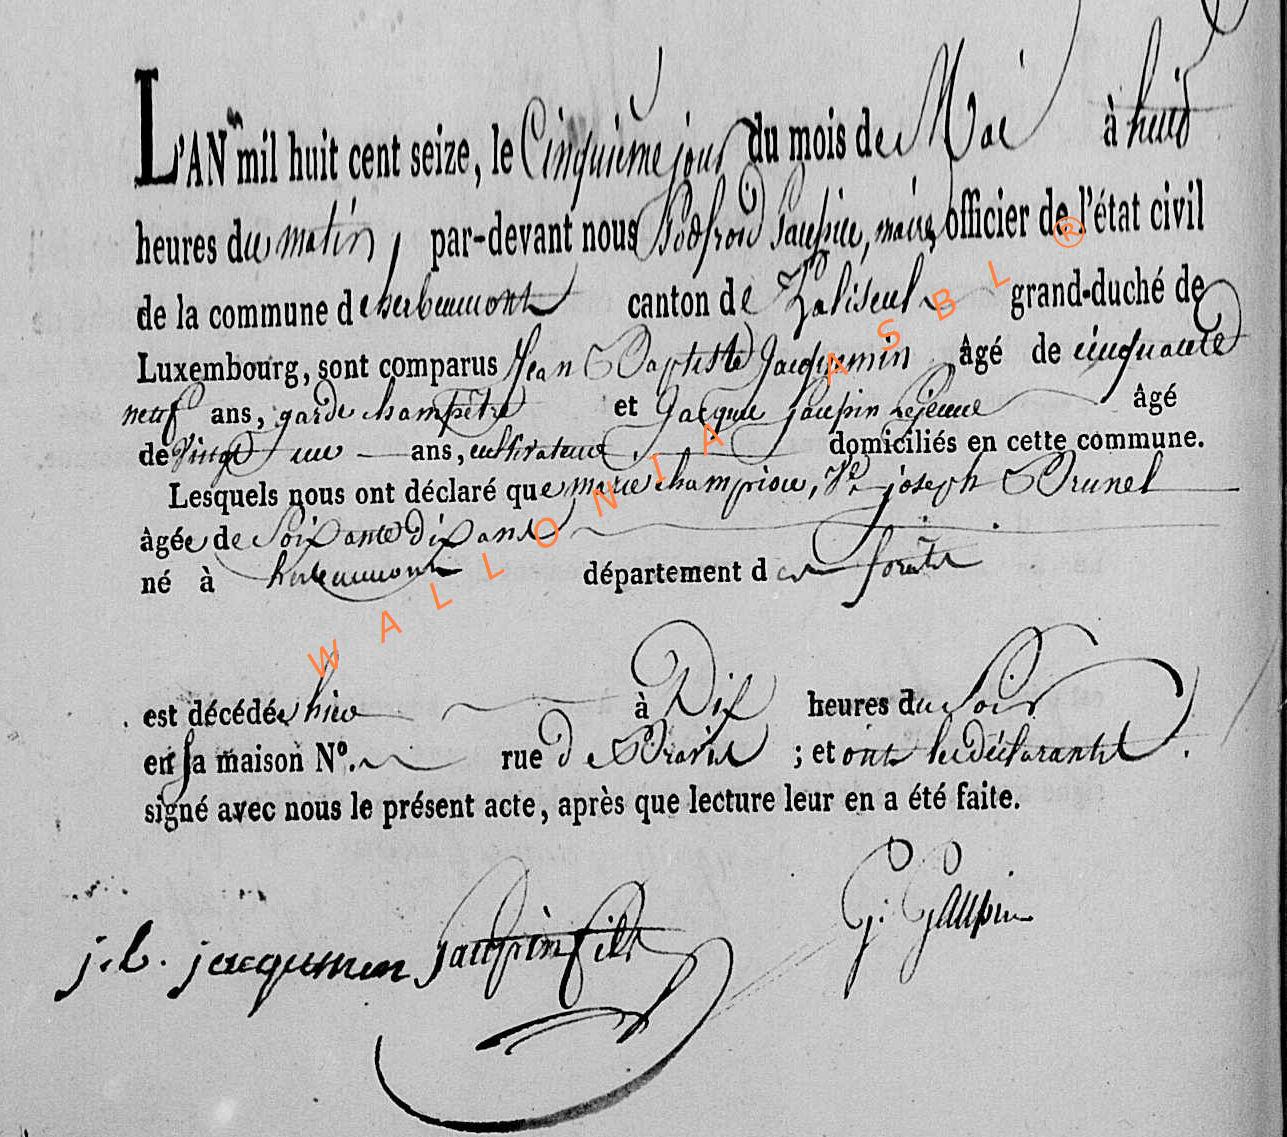 L'AN mil huit cent seize, le Cinquième jour du mois de Mai à huit
heures du matin, par-devant nous Godfroid Gaupin, maire, officier de l'état civil
de la commune d'herbeumont canton de Paliseul grand-duché de
Luxembourg, sont comparus Jean Baptiste Jacquemin âgé de cinquante
neuf ans, garde champêtre et Jacque Gaupin Lejeune âgé
de Vingt un ans, cultivateur domiciliés en cette commune.
Lesquels nous ont déclaré que marie champion, Ve joseph Brunel
âgée de Soixante dix ans
né à herbeumont département des forêts
est décédée hier à Dix heures du Soir
en sa maison N°. rue de ; et ont les déclarants
signé avec nous le présent acte, après que lecture leur en a été faite.
j. b. jacquemin Gaupin fils G: Gaupin
WALLONIA ASBL ®